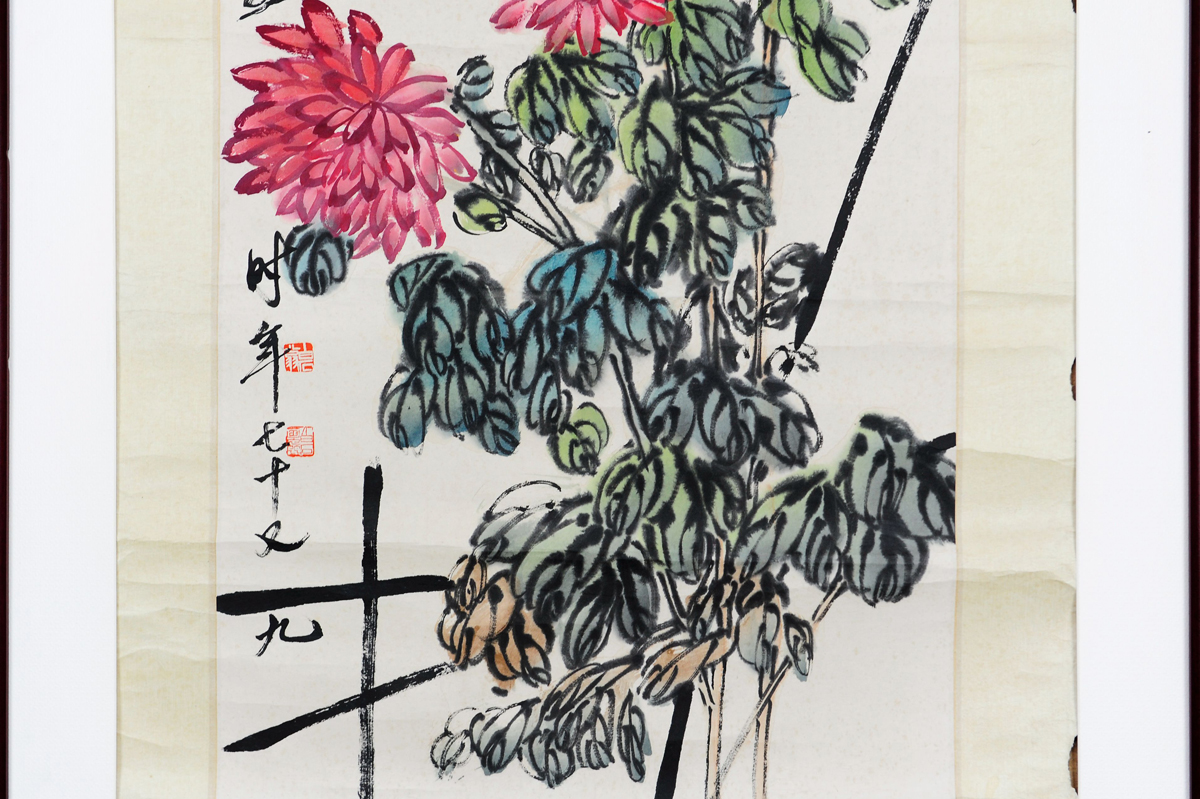 时年七十又九